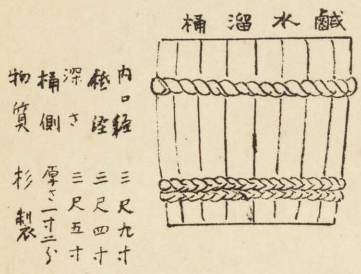 鹹水溜桶
内口経 三尺九寸
徑 三尺四寸
深さ 三尺五寸
桶側 厚さ一寸二分
物質 杉製